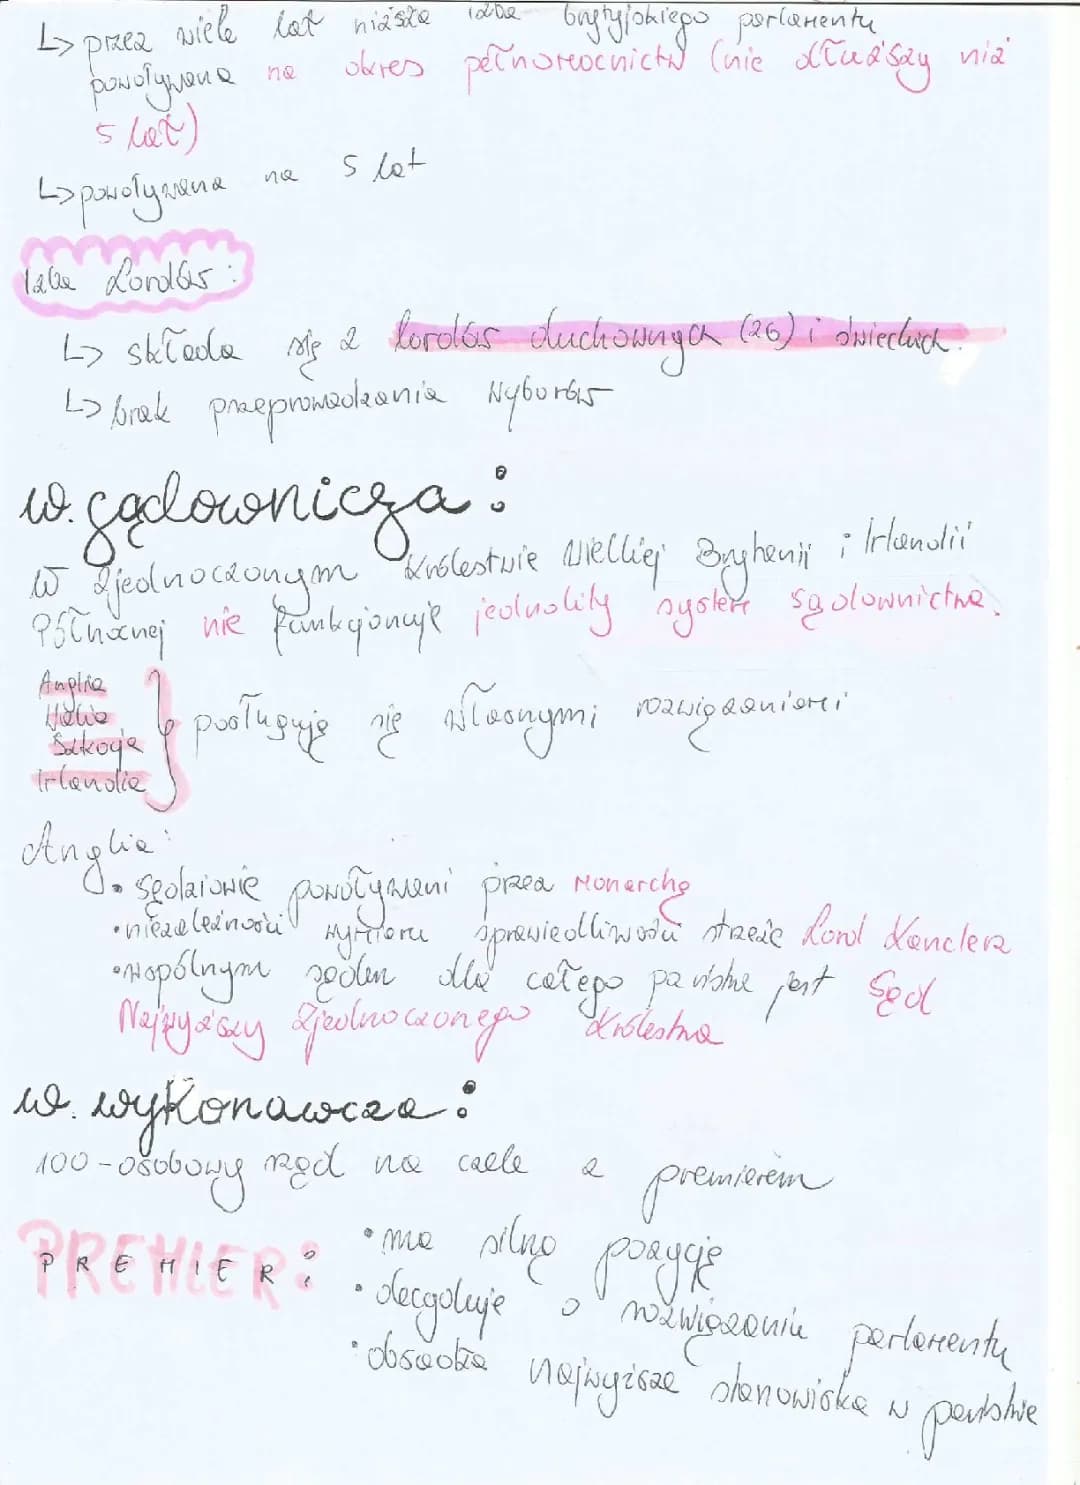 ↳ przez wiele lat niższa izba brytyjskiego parlamentu
powoływana na okres pełnomocnictw (nie dłuższy niż
5 lat)
↳ powoływana na 5 lat
Izba Lordów:
↳ składa się z lordów duchownych (26) i świeckich.
↳ brak przeprowadzania wyborów
w. sądownicza:
W Zjednoczonym Królestwie Wielkiej Brytanii i Irlandii
Północnej nie funkcjonuje jednolity system sądownictwa.
Anglia
Walia
Szkocja
Irlandia
posługuje się własnymi rozwiązaniami
Anglia:
• sędziowie powoływani przez Monarchę
• niezależności wymiaru sprawiedliwości strzeże Lord Kanclerz
• wspólnym sądem dla całego państwa jest Sąd
Najwyższy Zjednoczonego Królestwa
w. wykonawcza:
100-osobowy rząd na czele z premierem
PREMIER:
• ma silną pozycję
• decyduje o rozwiązaniu parlamentu
• obsadza najwyższe stanowiska w państwie